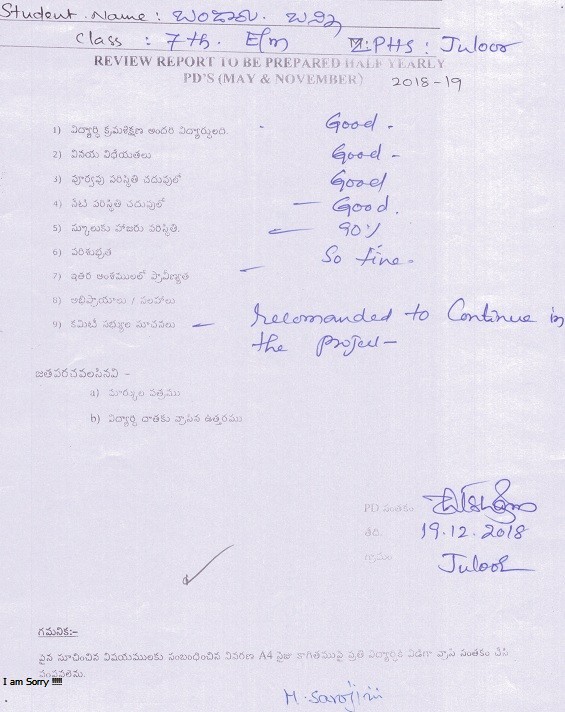 Student Name : బండారు. బన్ని
Class : 7th. E/m Z.PHS : Juloor
REVIEW REPORT TO BE PREPARED HALF YEARLY
PD'S (MAY & NOVEMBER) 2018-19
1) విద్యార్థి క్రమశిక్షణ అందరి విద్యార్థులది. - Good -
2) వినయ విధేయతలు Good -
3) పూర్వపు పరిస్థితి చదువులో Good
4) నేటి పరిస్థితి చదువులో - Good.
5) స్కూలుకు హాజరు పరిస్థితి. - 90%
6) పరిశుభ్రత So fine -
7) ఇతర అంశములలో ప్రావీణ్యత -
8) అభిప్రాయాలు / సలహాలు
9) కమిటి సభ్యుల సూచనలు - recomanded to Continue in
the project -
జతపరచవలసినవి -
a) మార్కుల పత్రము
b) విద్యార్థి దాతకు వ్రాసిన ఉత్తరము
PD సంతకం
తేది. 19.12.2018
గ్రామం Juloor
గమనిక:-
పైన సూచించిన విషయములకు సంబంధించిన వివరణ A4 సైజు కాగితముపై ప్రతి విద్యార్థికి విడిగా వ్రాసి సంతకం చేసి
పంపవలెను.
I am Sorry !!!!!
M. Sarojini